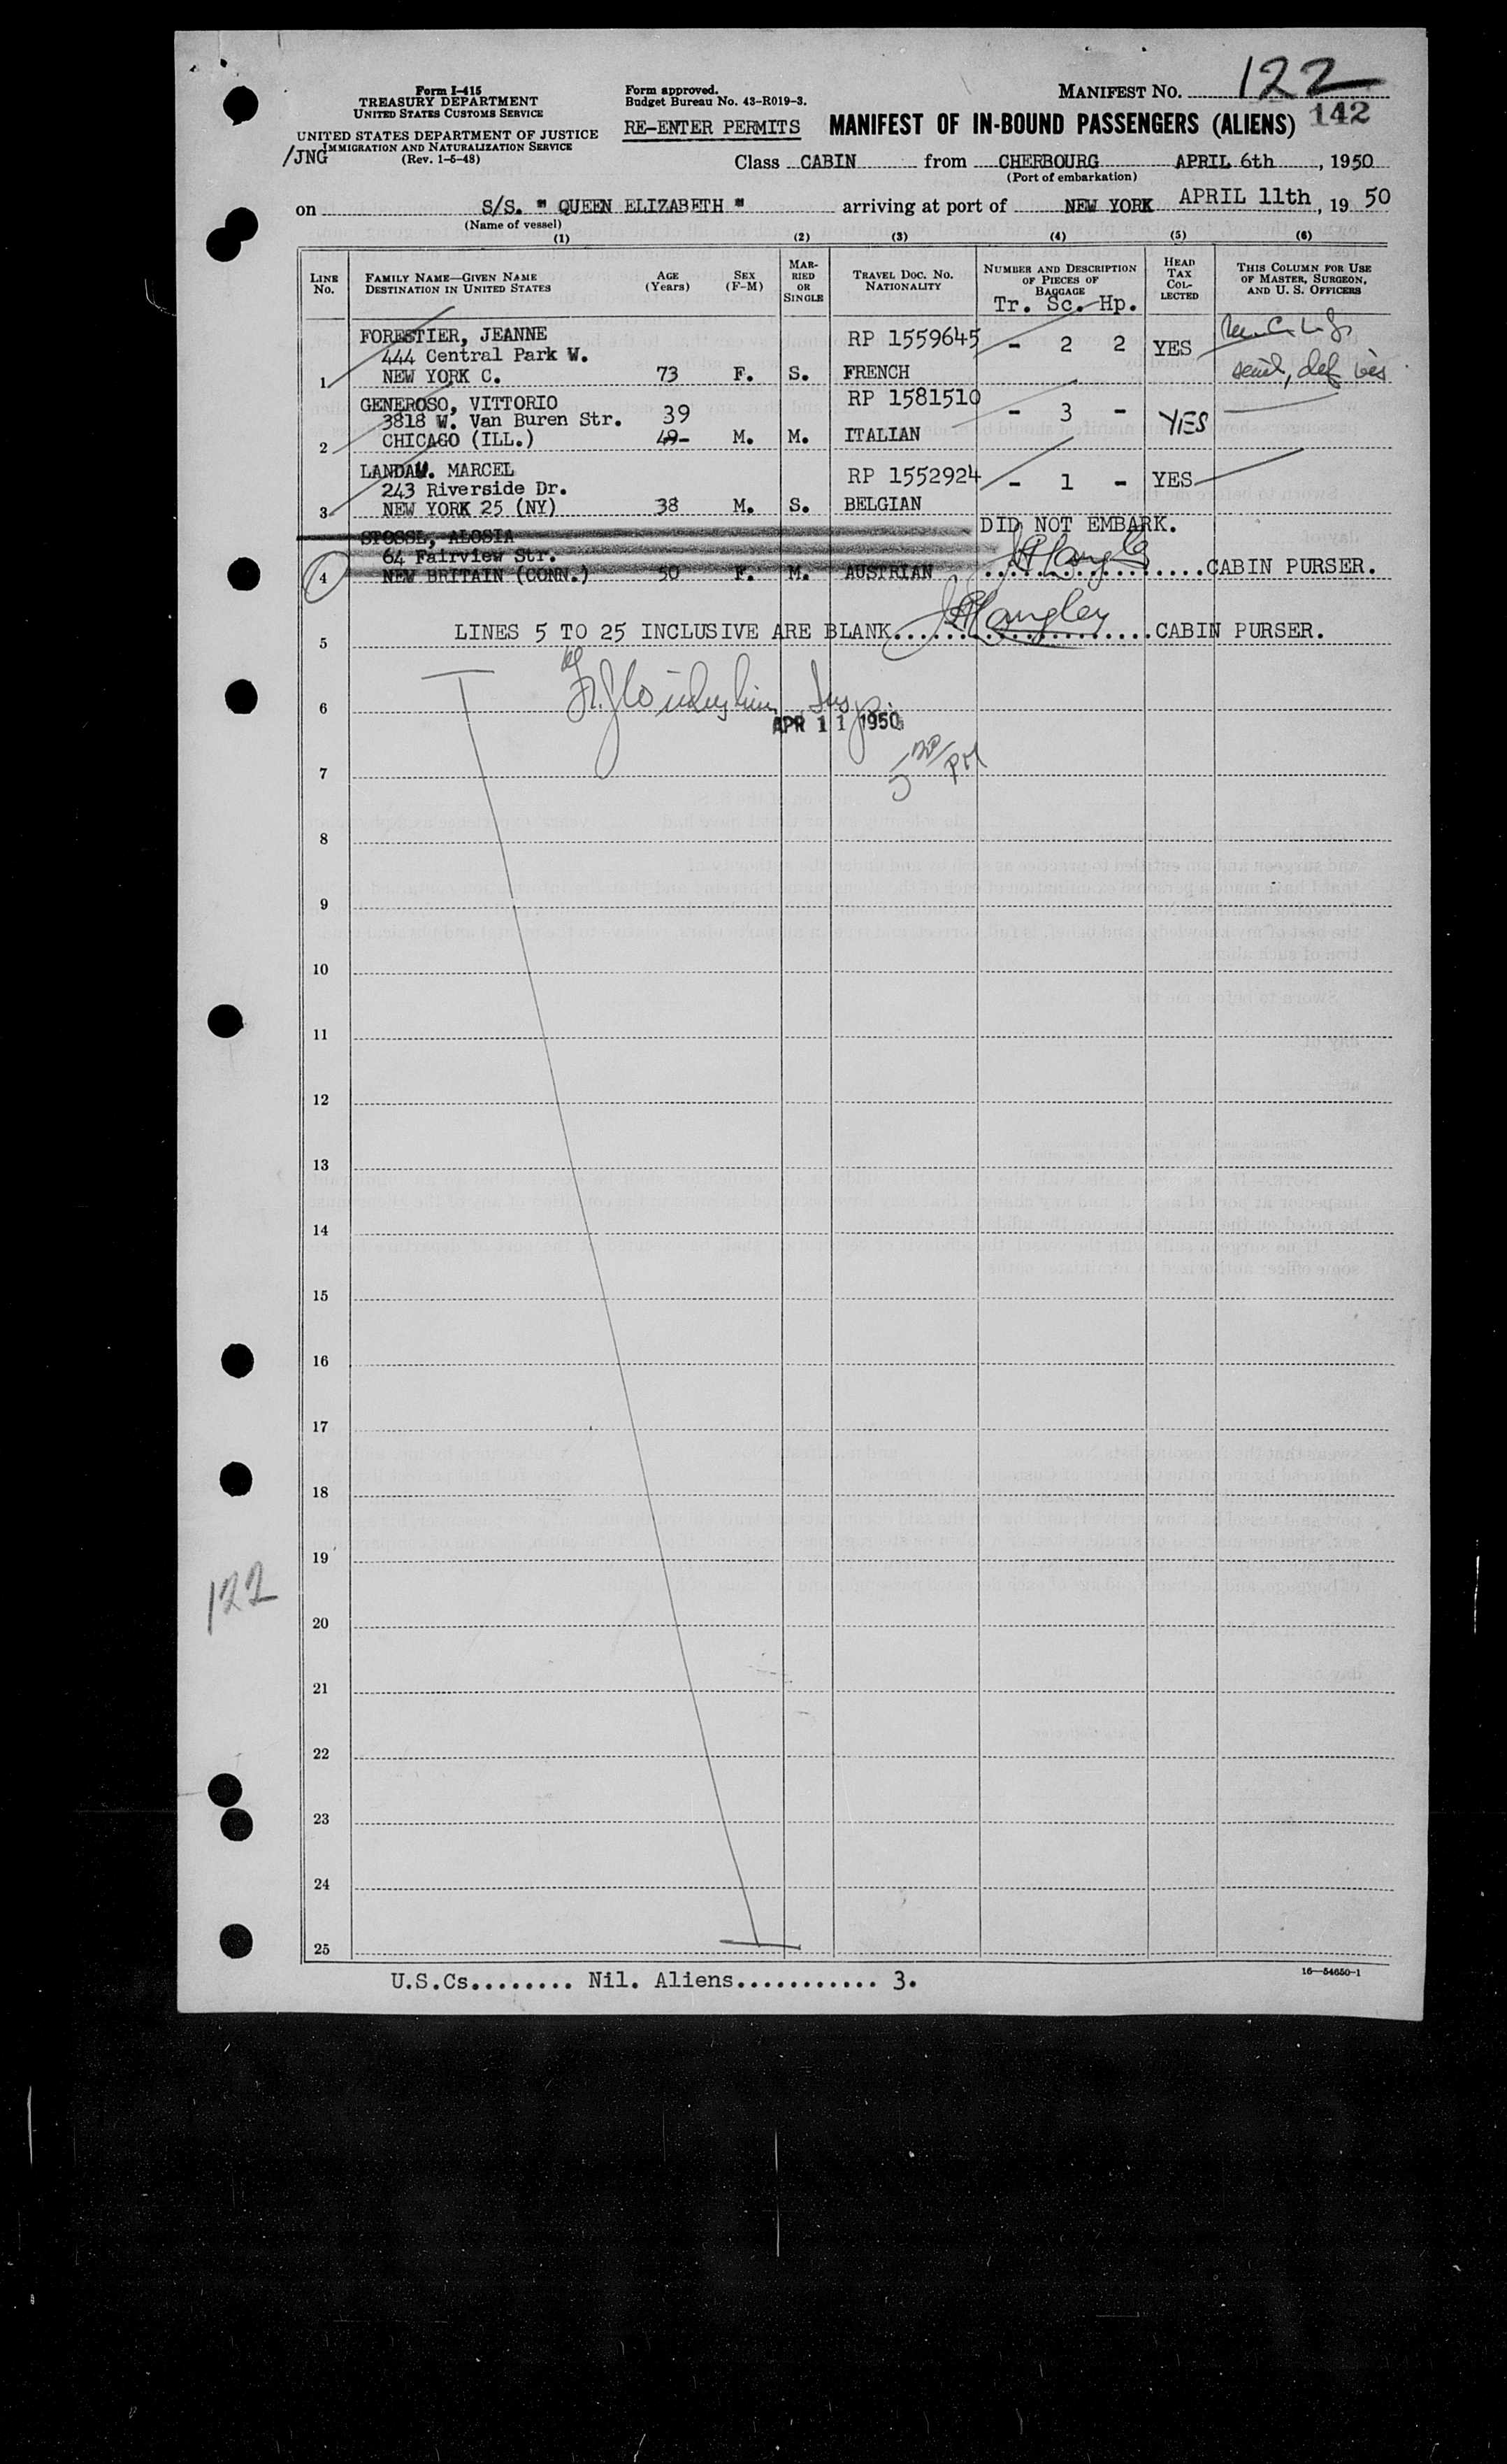 Form I-415
TREASURY DEPARTMENT
UNITED STATES CUSTOMS SERVICE
UNITED STATES DEPARTMENT OF JUSTICE
IMMIGRATION AND NATURALIZATION SERVICE
/JNG
(Rev. 1-5-48)
Form approved.
Budget Bureau No. 43-R019-3.
RE-ENTER PERMITS
MANIFEST NO. 122
MANIFEST OF IN-BOUND PASSENGERS (ALIENS) 142
Class CABIN from CHERBOURG APRIL 6th, 1950
(Port of embarkation)
on S/S. " QUEEN ELIZABETH " arriving at port of NEW YORK APRIL 11th, 19 50
(Name of vessel)
(1) (2) (3) (4) (5) (6)
LINE NO.
FAMILY NAME—GIVEN NAME
DESTINATION IN UNITED STATES
AGE (Years)
SEX (F-M)
MARRIED OR SINGLE
TRAVEL DOC. NO.
NATIONALITY
NUMBER AND DESCRIPTION OF PIECES OF BAGGAGE
Tr. Sc. Hp.
HEAD TAX COLLECTED
THIS COLUMN FOR USE OF MASTER, SURGEON, AND U. S. OFFICERS
FORESTIER, JEANNE RP 1559645
444 Central Park W. - 2 2 YES
1 NEW YORK C. 73 F. S. FRENCH
GENEROSO, VITTORIO RP 1581510
3818 W. Van Buren Str. 39 - 3 - YES
2 CHICAGO (ILL.) 49- M. M. ITALIAN
LANDAU. MARCEL RP 1552924
243 Riverside Dr. - 1 - YES
3 NEW YORK 25 (NY) 38 M. S. BELGIAN
STOSSL, ALOSIA DID NOT EMBARK.
64 Fairview Str.
4 NEW BRITAIN (CONN.) 50 F. M. AUSTRIAN ....................CABIN PURSER.
5 LINES 5 TO 25 INCLUSIVE ARE BLANK....................CABIN PURSER.
6
APR 11 1950
5 PM
7
8
9
10
11
12
13
14
15
16
17
18
19
122
20
21
22
23
24
25
U.S.Cs........ Nil. Aliens........... 3.
16—54650-1